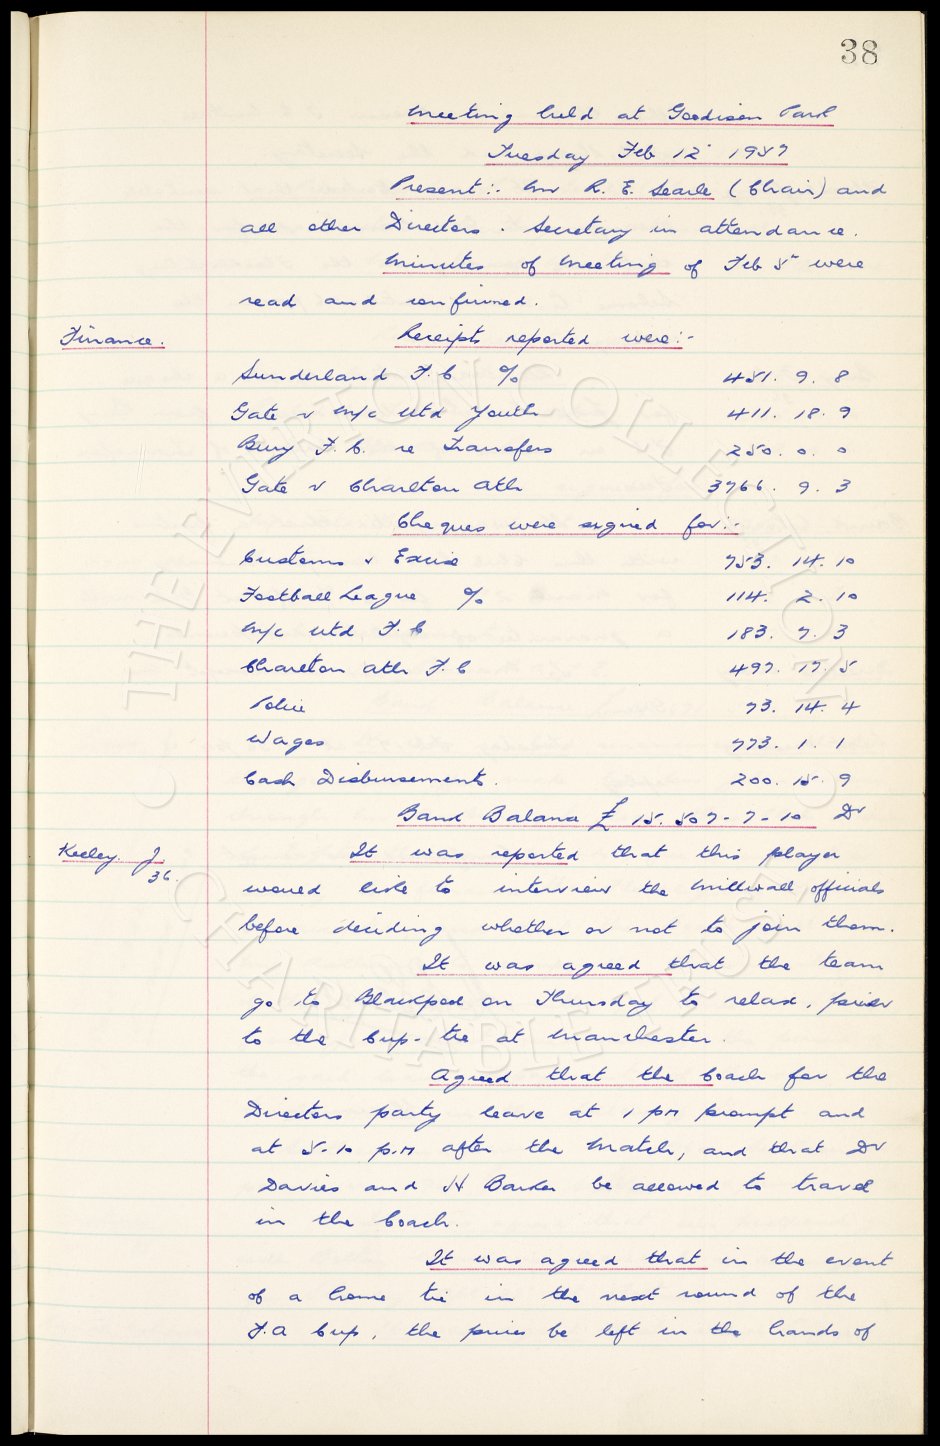 38
Meeting held at Goodison Park
Tuesday Feb 12" 1957
Present:- Mr R. E. Searle (Chair) and
all other Directors. Secretary in attendance.
Minutes of Meeting of Feb 5" were
read and confirmed.
Finance. Receipts reported were:-
Sunderland F.C % 451. 9. 8
Gate v M/c Utd Youth 411. 18. 9
Bury F.C. re Transfers 250. 0. 0
Gate v Charlton Ath 3766. 9. 3
Cheques were signed for:-
Customs & Excise 753. 14. 10
Football League % 114. 2. 10
M/c Utd F.C 183. 7. 3
Charlton Ath F.C 497. 17. 5
Police 73. 14. 4
Wages 773. 1. 1
Cash Disbursements. 200. 15. 9
Bank Balance £ 15.507-7-10 Dr
Keeley. J It was reported that this player
36. would like to interview the Millwall officials
before deciding whether or not to join them.
It was agreed that the team
go to Blackpool on Thursday to relax, prior
to the Cup-tie at Manchester.
Agreed that the Coach for the
Directors party leave at 1 pm prompt and
at 5-10 p.m after the Match, and that Dr
Davies and H Barker be allowed to travel
in the Coach.
It was agreed that in the event
of a home tie in the next round of the
F.A Cup, the prices be left in the hands of
THE EVERTON COLLECTION
CHARITABLE TRUST